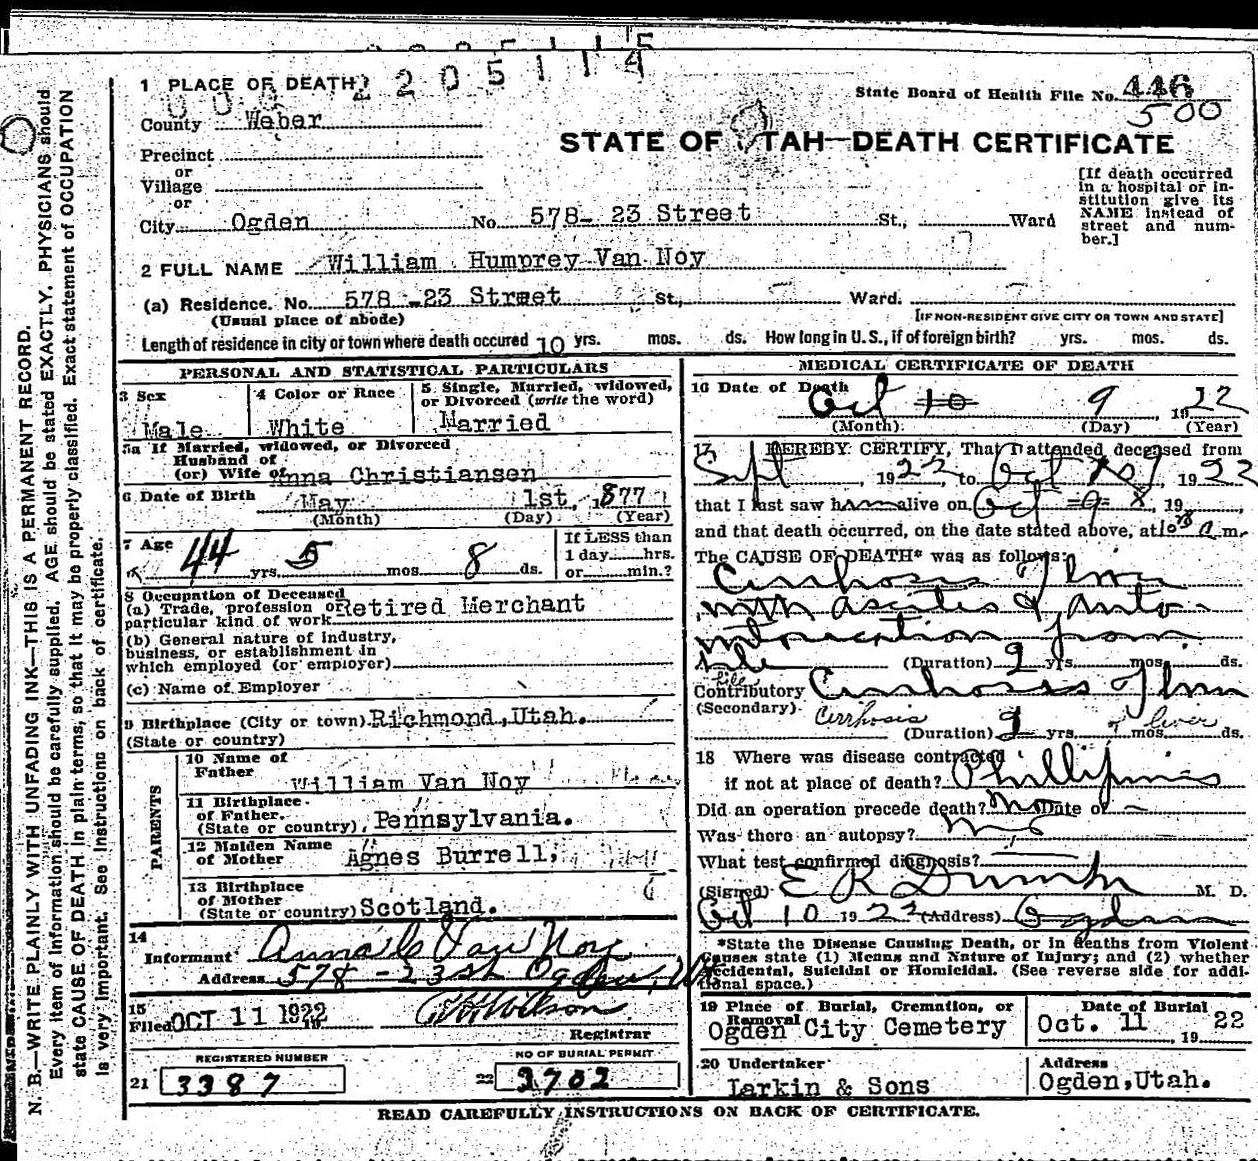 2205114
1 PLACE OF DEATH
State Board of Health File No. 446
500
County Weber
STATE OF UTAH—DEATH CERTIFICATE
Precinct
or
Village
or
City Ogden No. 578- 23 Street St., Ward
[If death occurred
in a hospital or in-
stitution give its
NAME instead of
street and num-
ber.]
2 FULL NAME William Humprey Van Noy
(a) Residence. No. 578 -23 Street St., Ward.
(Usual place of abode) [IF NON-RESIDENT GIVE CITY OR TOWN AND STATE]
Length of residence in city or town where death occured 10 yrs. mos. ds. How long in U. S., if of foreign birth? yrs. mos. ds.
PERSONAL AND STATISTICAL PARTICULARS
3 Sex Male
4 Color or Race White
5 Single, Married, widowed,
or Divorced (write the word)
Married
5a If Married, widowed, or Divorced
Husband of
(or) Wife of Anna Christiansen
6 Date of Birth May 1st, 1877
(Month) (Day) (Year)
7 Age 44 yrs. 5 mos. 8 ds.
If LESS than
1 day......hrs.
or......min.?
8 Occupation of Deceased
(a) Trade, profession or
particular kind of work Retired Merchant
(b) General nature of industry,
business, or establishment in
which employed (or employer)
(c) Name of Employer
9 Birthplace (City or town) Richmond, Utah.
(State or country)
PARENTS
10 Name of
Father William Van Noy
11 Birthplace
of Father.
(State or country) Pennsylvania.
12 Maiden Name
of Mother Agnes Burrell,
13 Birthplace
of Mother
(State or country) Scotland.
14
Informant Anna C Van Noy
Address 578 - 23 St Ogden, Ut
15
Filed OCT 11 1922
Registrar
REGISTERED NUMBER
21 3387
NO OF BURIAL PERMIT
22 3702
MEDICAL CERTIFICATE OF DEATH
16 Date of Death
Oct 10 9, 1922
(Month) (Day) (Year)
17 I HEREBY CERTIFY, That I attended deceased from
Sept, 1922, to Oct 9, 1922
that I last saw him alive on Oct 8, 19
and that death occurred, on the date stated above, at 10 a m.
The CAUSE OF DEATH* was as follows:
Cirrhosis of Liver
with ascites & auto
intoxication from
bile
(Duration) 9 yrs. mos. ds.
bile
Contributory Cirrhosis of Liver
(Secondary)
Cirrhosis of liver
(Duration) 9 yrs. mos. ds.
18 Where was disease contracted
if not at place of death? Phillipines
Did an operation precede death? no Date of —
Was there an autopsy? no
What test confirmed diagnosis?
(Signed) E R Dumke M. D.
Oct 10 1922 (Address) Ogden
*State the Disease Causing Death, or in deaths from Violent
Causes state (1) Means and Nature of Injury; and (2) whether
Accidental, Suicidal or Homicidal. (See reverse side for addi-
tional space.)
19 Place of Burial, Cremation, or
Removal
Ogden City Cemetery
Date of Burial
Oct. 11 1922
20 Undertaker
Larkin & Sons
Address
Ogden, Utah.
READ CAREFULLY INSTRUCTIONS ON BACK OF CERTIFICATE.
N. B.—WRITE PLAINLY WITH UNFADING INK—THIS IS A PERMANENT RECORD.
Every item of information should be carefully supplied. AGE should be stated EXACTLY. PHYSICIANS should
state CAUSE OF DEATH in plain terms, so that it may be properly classified. Exact statement of OCCUPATION
is very important. See instructions on back of certificate.